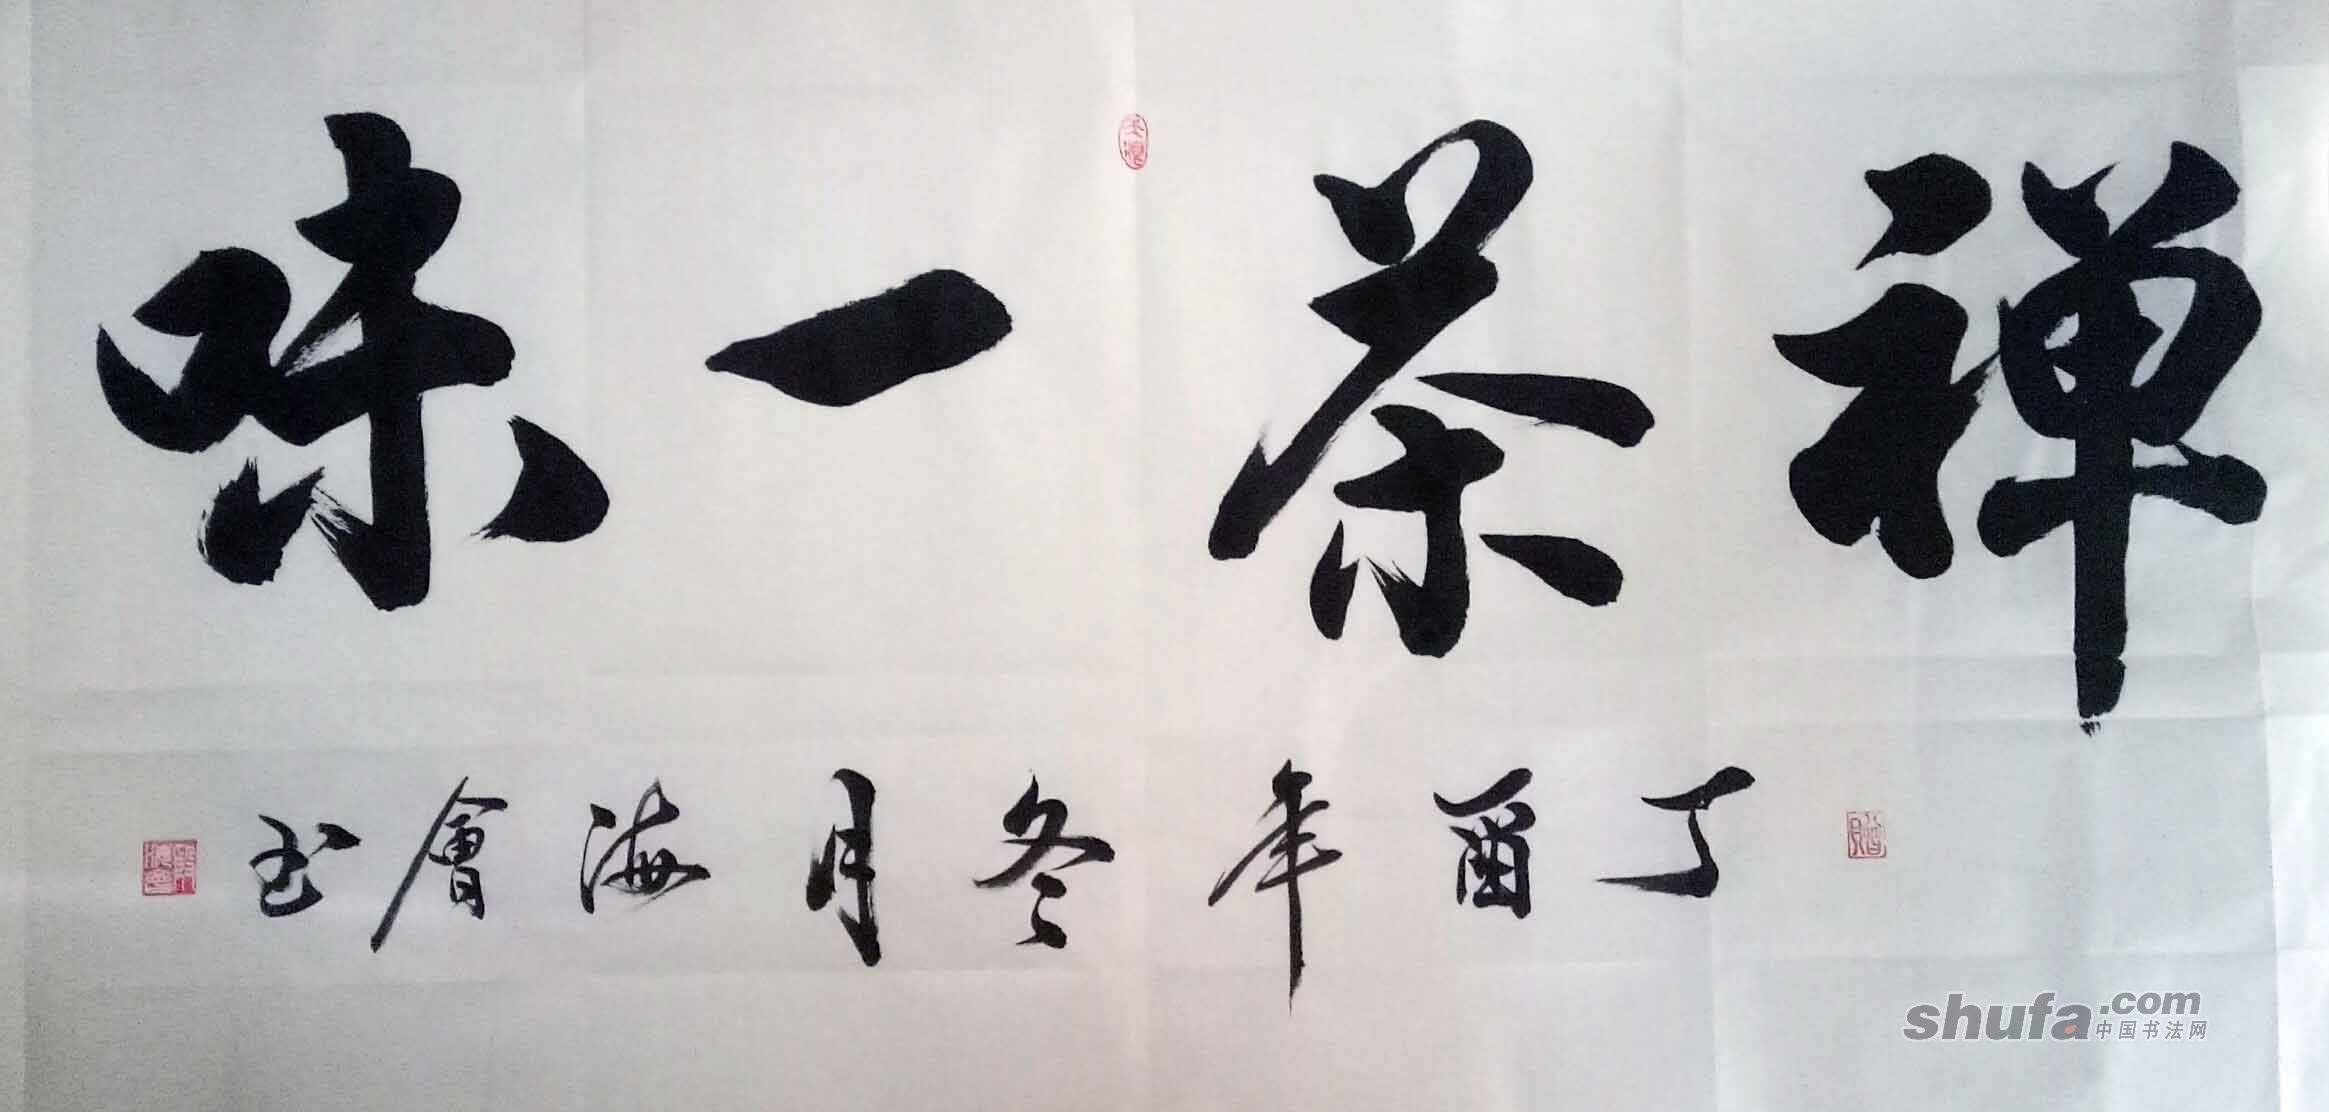 禅茶一味
丁酉年冬月海會书
shufa.com
中国书法网